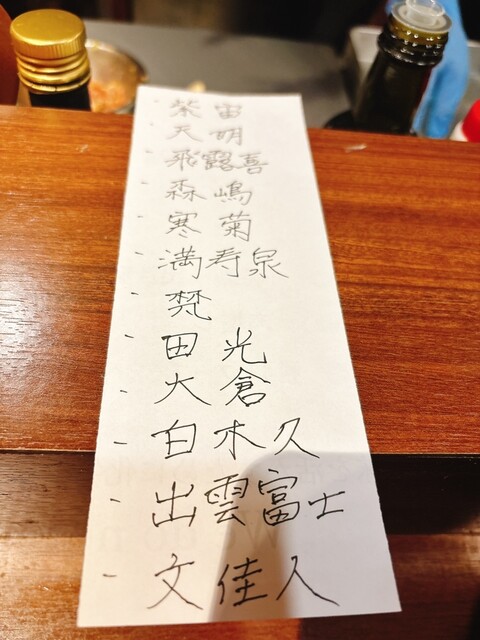 - 紫宙
- 天明
- 飛露喜
- 森嶋
- 寒菊
- 満寿泉
- 梵
- 田光
- 大倉
- 白木久
- 出雲富士
- 文佳人